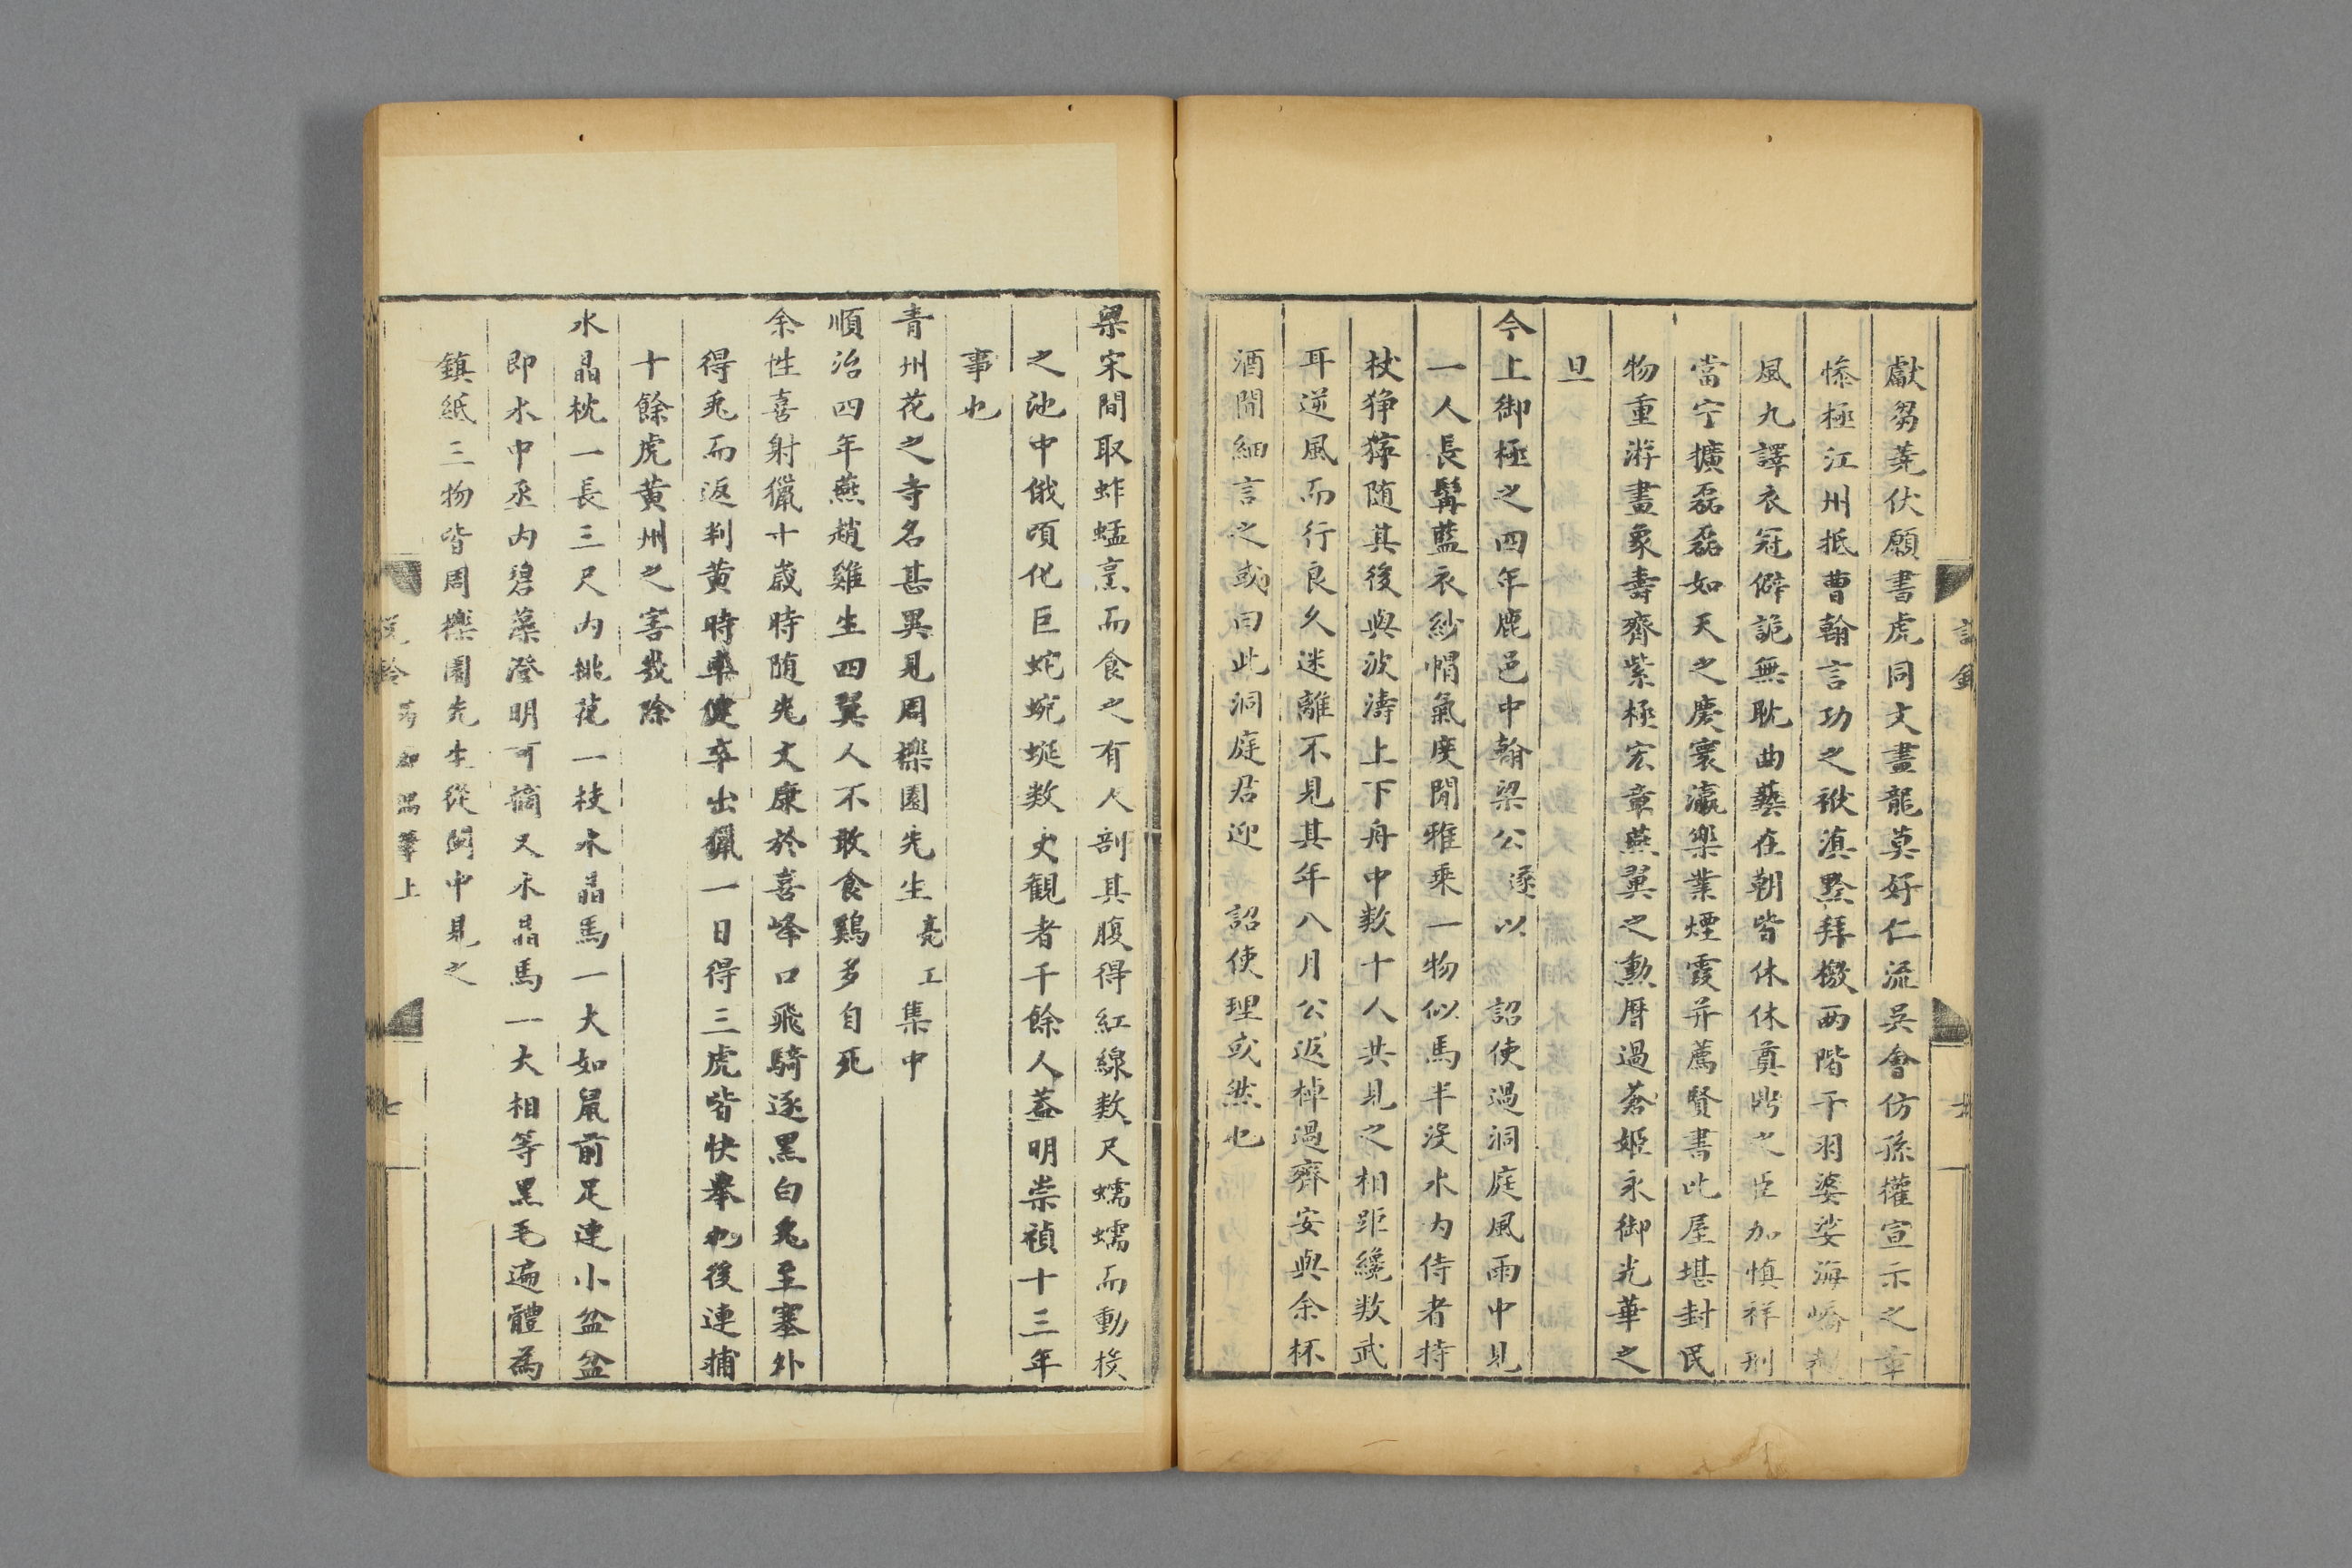 獻芻蕘伏願書虎同文畫龍莫好仁流吳會仿孫權宣示之章
慘極江州抵曹翰言功之袱滇黔拜檄兩階干羽婆娑海嶠
風九譯衣冠僻詭無耽曲藝在朝皆休休奠鼎之臣加慎祥刑
當宁擴磊磊如天之慶寰瀛樂業煙霞并薦賢書比屋堪封民
物重游畫象壽齊紫極宏章燕翼之勲曆過蒼姬永御光華之
旦
今上御極之四年鹿邑中翰梁公遂以 詔使過洞庭風雨中見
一人長髯藍衣紗帽氣度閒雅乘一物似馬半没水内侍者持
杖狰獰随其後與波濤上下舟中数十人共見之相距纔数武
耳逆風而行良久迷離不見其年八月公返棹過齊安與余杯
酒間細言之或曰此洞庭君迎 詔使理或然也
梁宋間取蚱蜢烹而食之有人剖其腹得紅線数尺蠕蠕而動投
之池中俄頃化巨蛇蜿蜒数丈観者千餘人葢明崇禎十三年
事也
青州花之寺名甚異見周櫟園先生亮工集中
順治四年燕趙雞生四翼人不敢食鷄多自死
余性喜射獵十歲時随先文康於喜峰口飛騎逐黑白兔至塞外
得兎而返判黄時率健卒出獵一日得三虎皆快舉也後連捕
十餘虎黄州之害幾除
水晶枕一長三尺内桃花一枝水晶馬一大如鼠前足連小盆盆
即水中丞内碧藻澄明可摘又水晶馬一大相等黑毛遍體為
鎮紙三物皆周櫟園先生從閩中見之
筠廊偶筆上
七